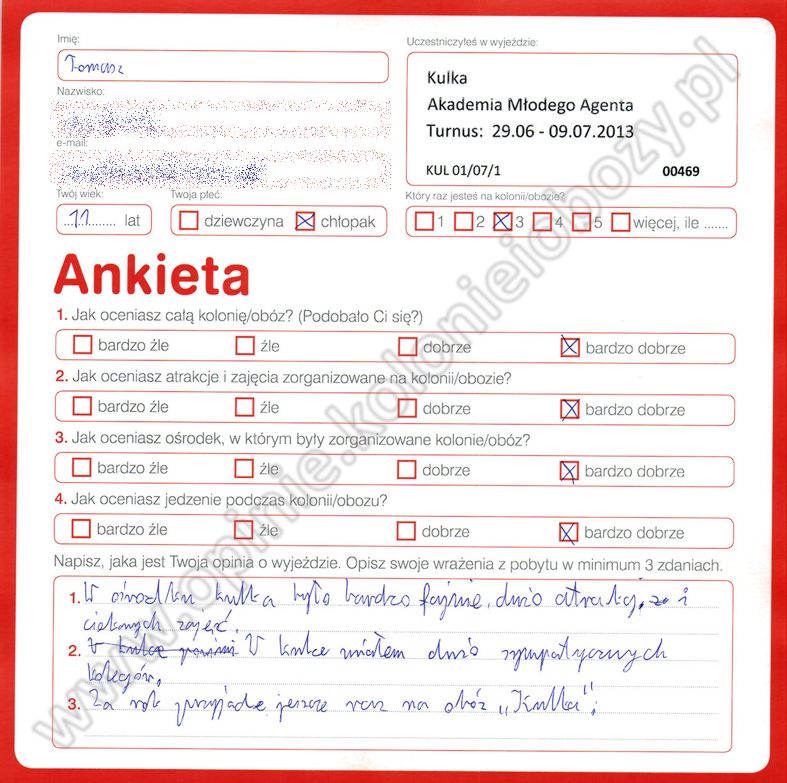 Imię:
Tomasz
Nazwisko:
e-mail:
Twój wiek:
11 lat
Twoja płeć:
dziewczyna chłopak
Uczestniczyłeś w wyjeździe:
Kulka
Akademia Młodego Agenta
Turnus: 29.06 - 09.07.2013
KUL 01/07/1 00469
Który raz jesteś na kolonii/obozie?
1 2 3 4 5 więcej, ile .......
Ankieta
1. Jak oceniasz całą kolonię/obóz? (Podobało Ci się?)
bardzo źle źle dobrze bardzo dobrze
2. Jak oceniasz atrakcje i zajęcia zorganizowane na kolonii/obozie?
bardzo źle źle dobrze bardzo dobrze
3. Jak oceniasz ośrodek, w którym były zorganizowane kolonie/obóz?
bardzo źle źle dobrze bardzo dobrze
4. Jak oceniasz jedzenie podczas kolonii/obozu?
bardzo źle źle dobrze bardzo dobrze
Napisz, jaka jest Twoja opinia o wyjeździe. Opisz swoje wrażenia z pobytu w minimum 3 zdaniach.
1. W ośrodku kulka było bardzo fajnie, dużo atrakcj, i
ciekawych zajęć.
2. W kulce miałem dużo sympatycznych
kolegów,
3. Za rok przyjadę jeszcze raz na obóz "Kulka".
www.opinie.kolonieiobozy.pl